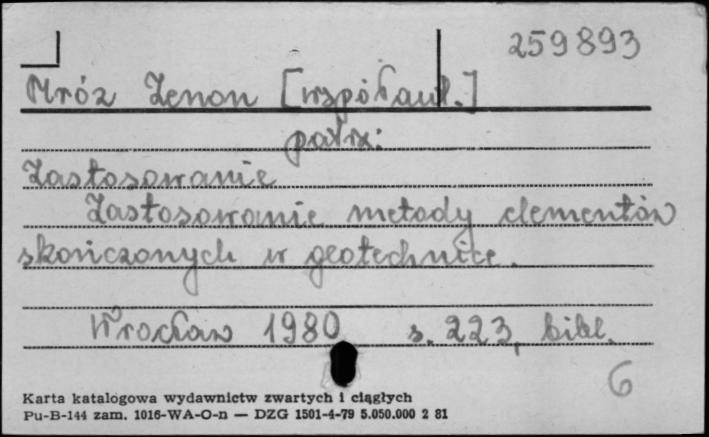 259893
Mróz Zenon [współaut.]
patrz:
Zastosowanie
Zastosowanie metody elementów
skończonych w geotechnice.
Wrocław 1980 s. 223, bibl.
6
Karta katalogowa wydawnictw zwartych i ciągłych
Pu-B-144 zam. 1016-WA-O-n — DZG 1501-4-79 5.050.000 2 81